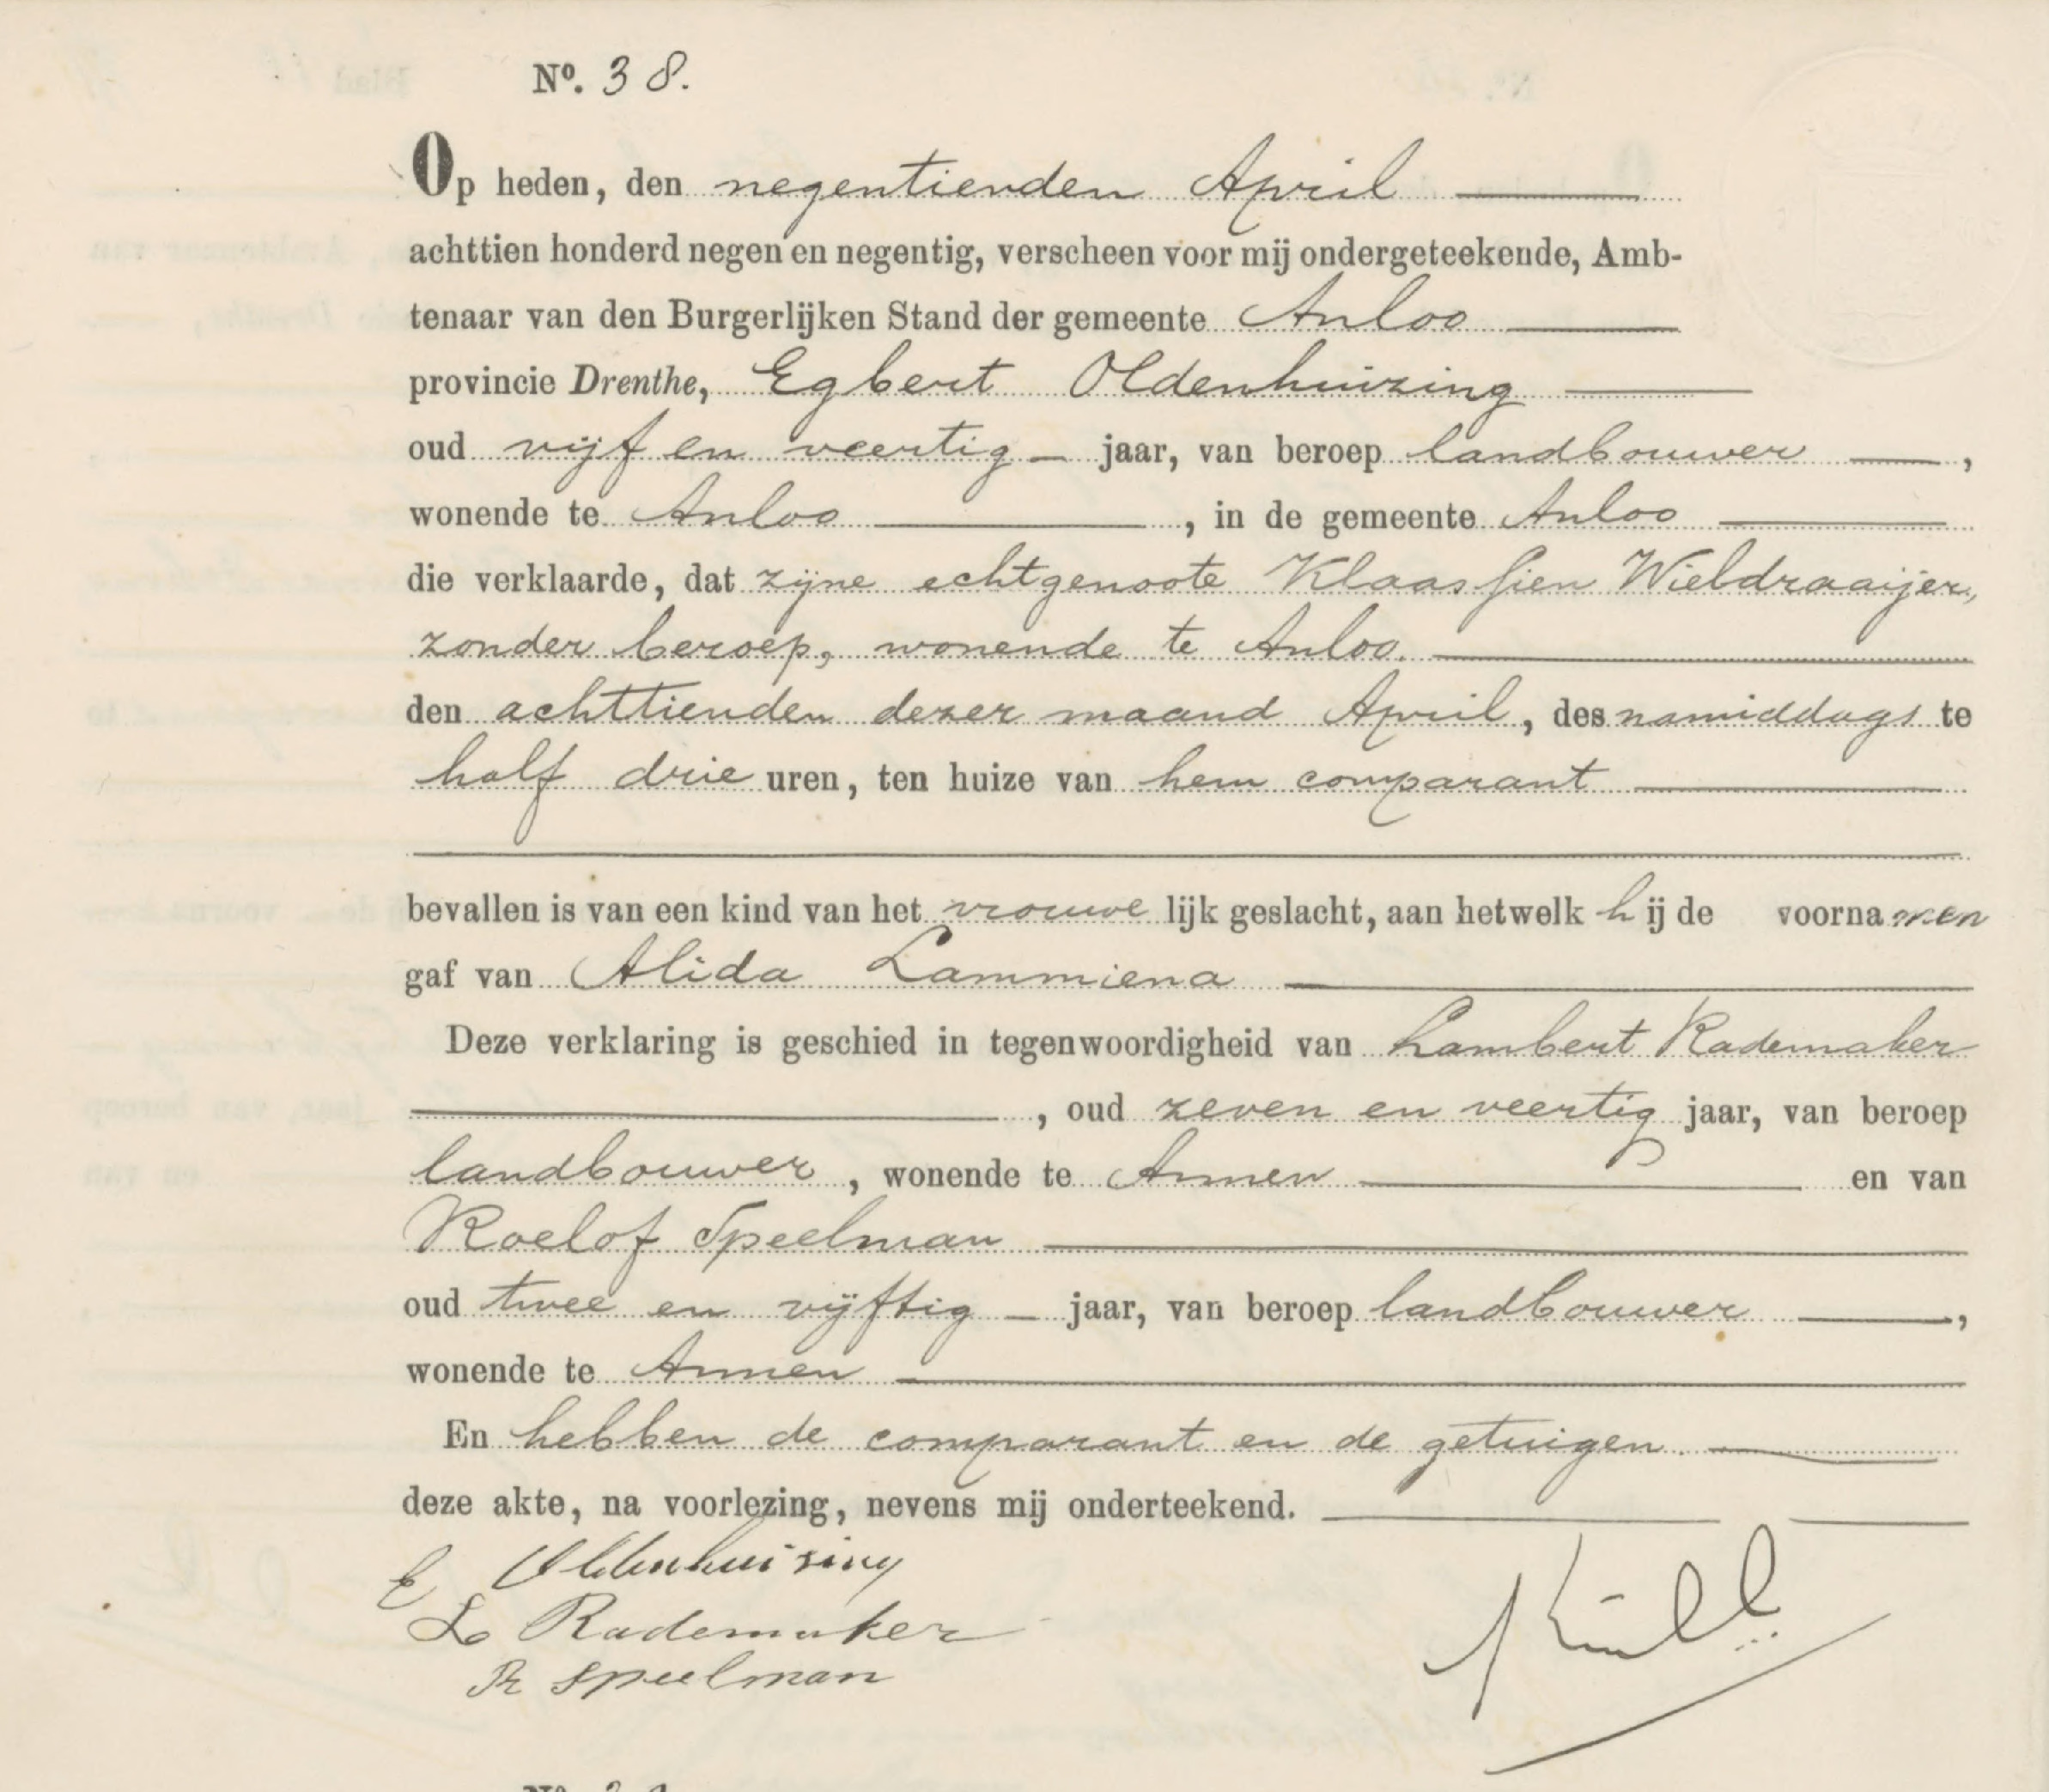 Nº. 38.
Op heden, den negentienden April
achttien honderd negen en negentig, verscheen voor mij ondergeteekende, Amb-
tenaar van den Burgerlijken Stand der gemeente Anloo
provincie Drenthe, Egbert Oldenhuizing
oud vijf en veertig jaar, van beroep landbouwer,
wonende te Anloo, in de gemeente Anloo
die verklaarde, dat zijne echtgenoote Klaassien Wieldraaijer,
zonder beroep, wonende te Anloo.
den achttienden dezer maand April, des namiddags te
half drie uren, ten huize van hem comparant
bevallen is van een kind van het vrouwelijk geslacht, aan hetwelk hij de voornamen
gaf van Alida Lammiena
Deze verklaring is geschied in tegenwoordigheid van Lambert Rademaker
, oud zeven en veertig jaar, van beroep
landbouwer, wonende te Annen en van
Roelof Speelman
oud twee en vijftig jaar, van beroep landbouwer,
wonende te Annen
En hebben de comparant en de getuigen
deze akte, na voorlezing, nevens mij onderteekend.
E Oldenhuising
L Rademaker
R Speelman